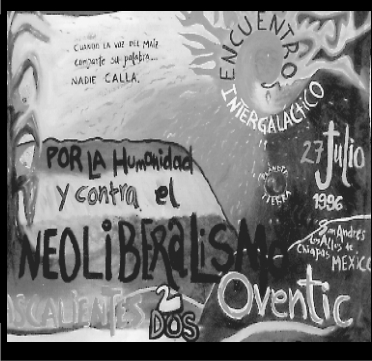 CUANDO LA VOZ DEL MAÍZ
comparte su palabra...
NADIE CALLA.
ENCUENTRO
INTERGALACTICO
POR LA HumaNidad
y contra el
NEOLIBERALISMO
27 Julio
1996
PLANETA
TIERRA
San Andres
los Altos de
Chiapas
MEXICO
Oventic
AGUASCALIENTES
2
DOS